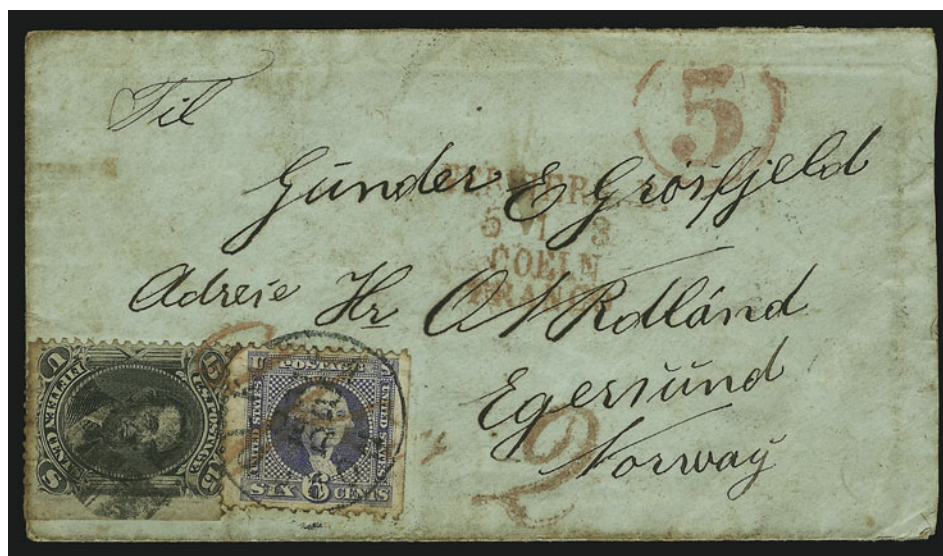 Til
5
Gunder E Grösfjeld
5 VI
COELN
FRANCO
Adresse Hr O N Rodland
Egersund
Norway
2
U.S. POSTAGE
15
U S
U POSTAGE
UNITED STATES
UNITED STATES
SIX 6 CENTS